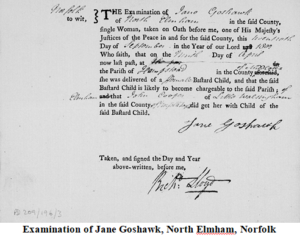 Norfolk
to wit,
THE Examination of Jane Goshawk
of North Elmham in the said County,
single Woman, taken on Oath before me, one of His Majesty's
Justices of the Peace and for the said County, this
Day of September in the Year of our Lord 1809
Who saith, that on the Day of
now last past, at
the Parish of in the County
she was delivered of a Female Bastard Child, and that the said
Bastard Child is likely to become chargeable to the said Parish; of
Elmham and that John of Little Walsingham
in the said County, did get her with Child of the
said Bastard Child.
Jane Goshawk
Taken, and signed the Day and Year
above-written, before me,
Richd Lloyd
Examination of Jane Goshawk, North Elmham, Norfolk